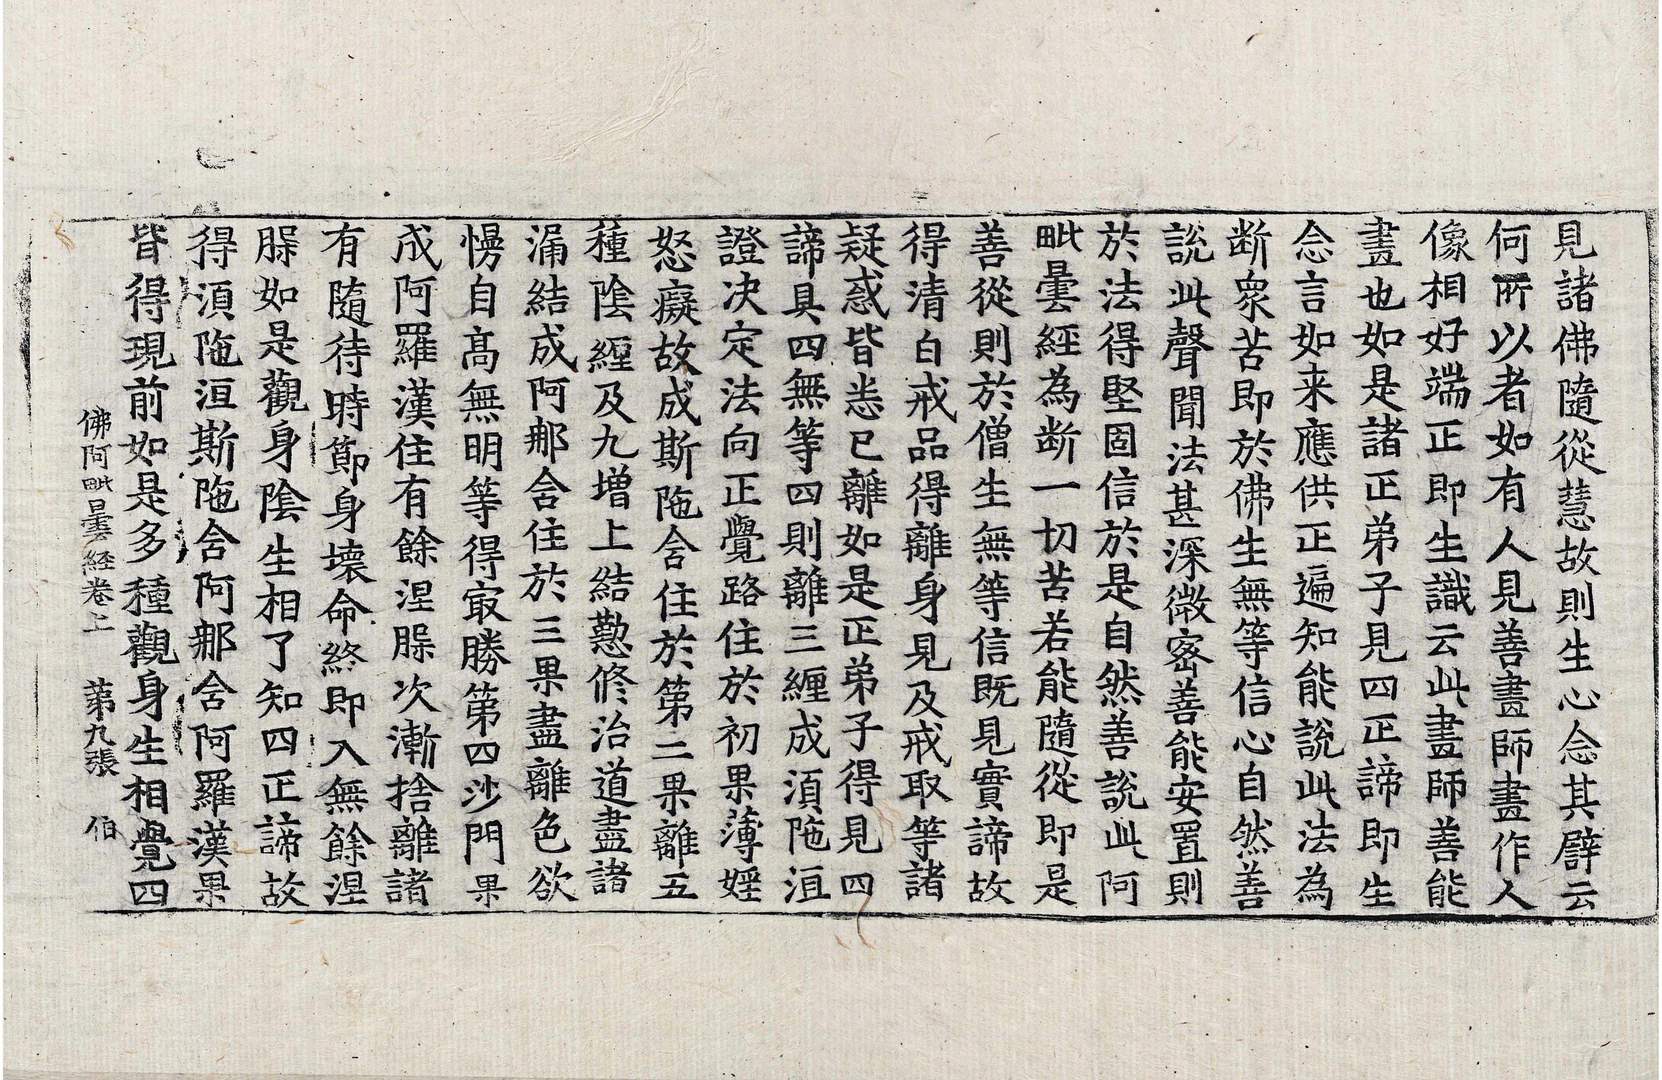 見諸佛隨從慧故則生心念其譬云
何所以者如有人見善畫師畫作人
像相好端正即生識云此畫師善能
畫也如是諸正弟子見四正諦即生
念言如来應供正遍知能說此法為
断衆苦即於佛生無等信心自然善
說此聲聞法甚深微密善能安置則
於法得堅固信於是自然善說此阿
毗曇經為断一切苦若能隨從即是
善從則於僧生無等信既見實諦故
得清白戒品得離身見及戒取等諸
疑惑皆悉已離如是正弟子得見四
諦具四無等四則離三纏成湏陁洹
證决定法向正覺路住於初果薄婬
怒癡故成斯陁含住於第二果離五
種陰纏及九增上結懃修治道盡諸
漏結成阿那含住於三果盡離色欲
慢自高無明等得㝡勝第四沙門果
成阿羅漢住有餘涅脲次漸捨離諸
有隨待時節身壞命終即入無餘涅
脲如是觀身陰生相了知四正諦故
得湏陁洹斯陁含阿那含阿羅漢果
皆得現前如是多種觀身生相覺四
佛阿毗曇经卷上 苐九張 伯